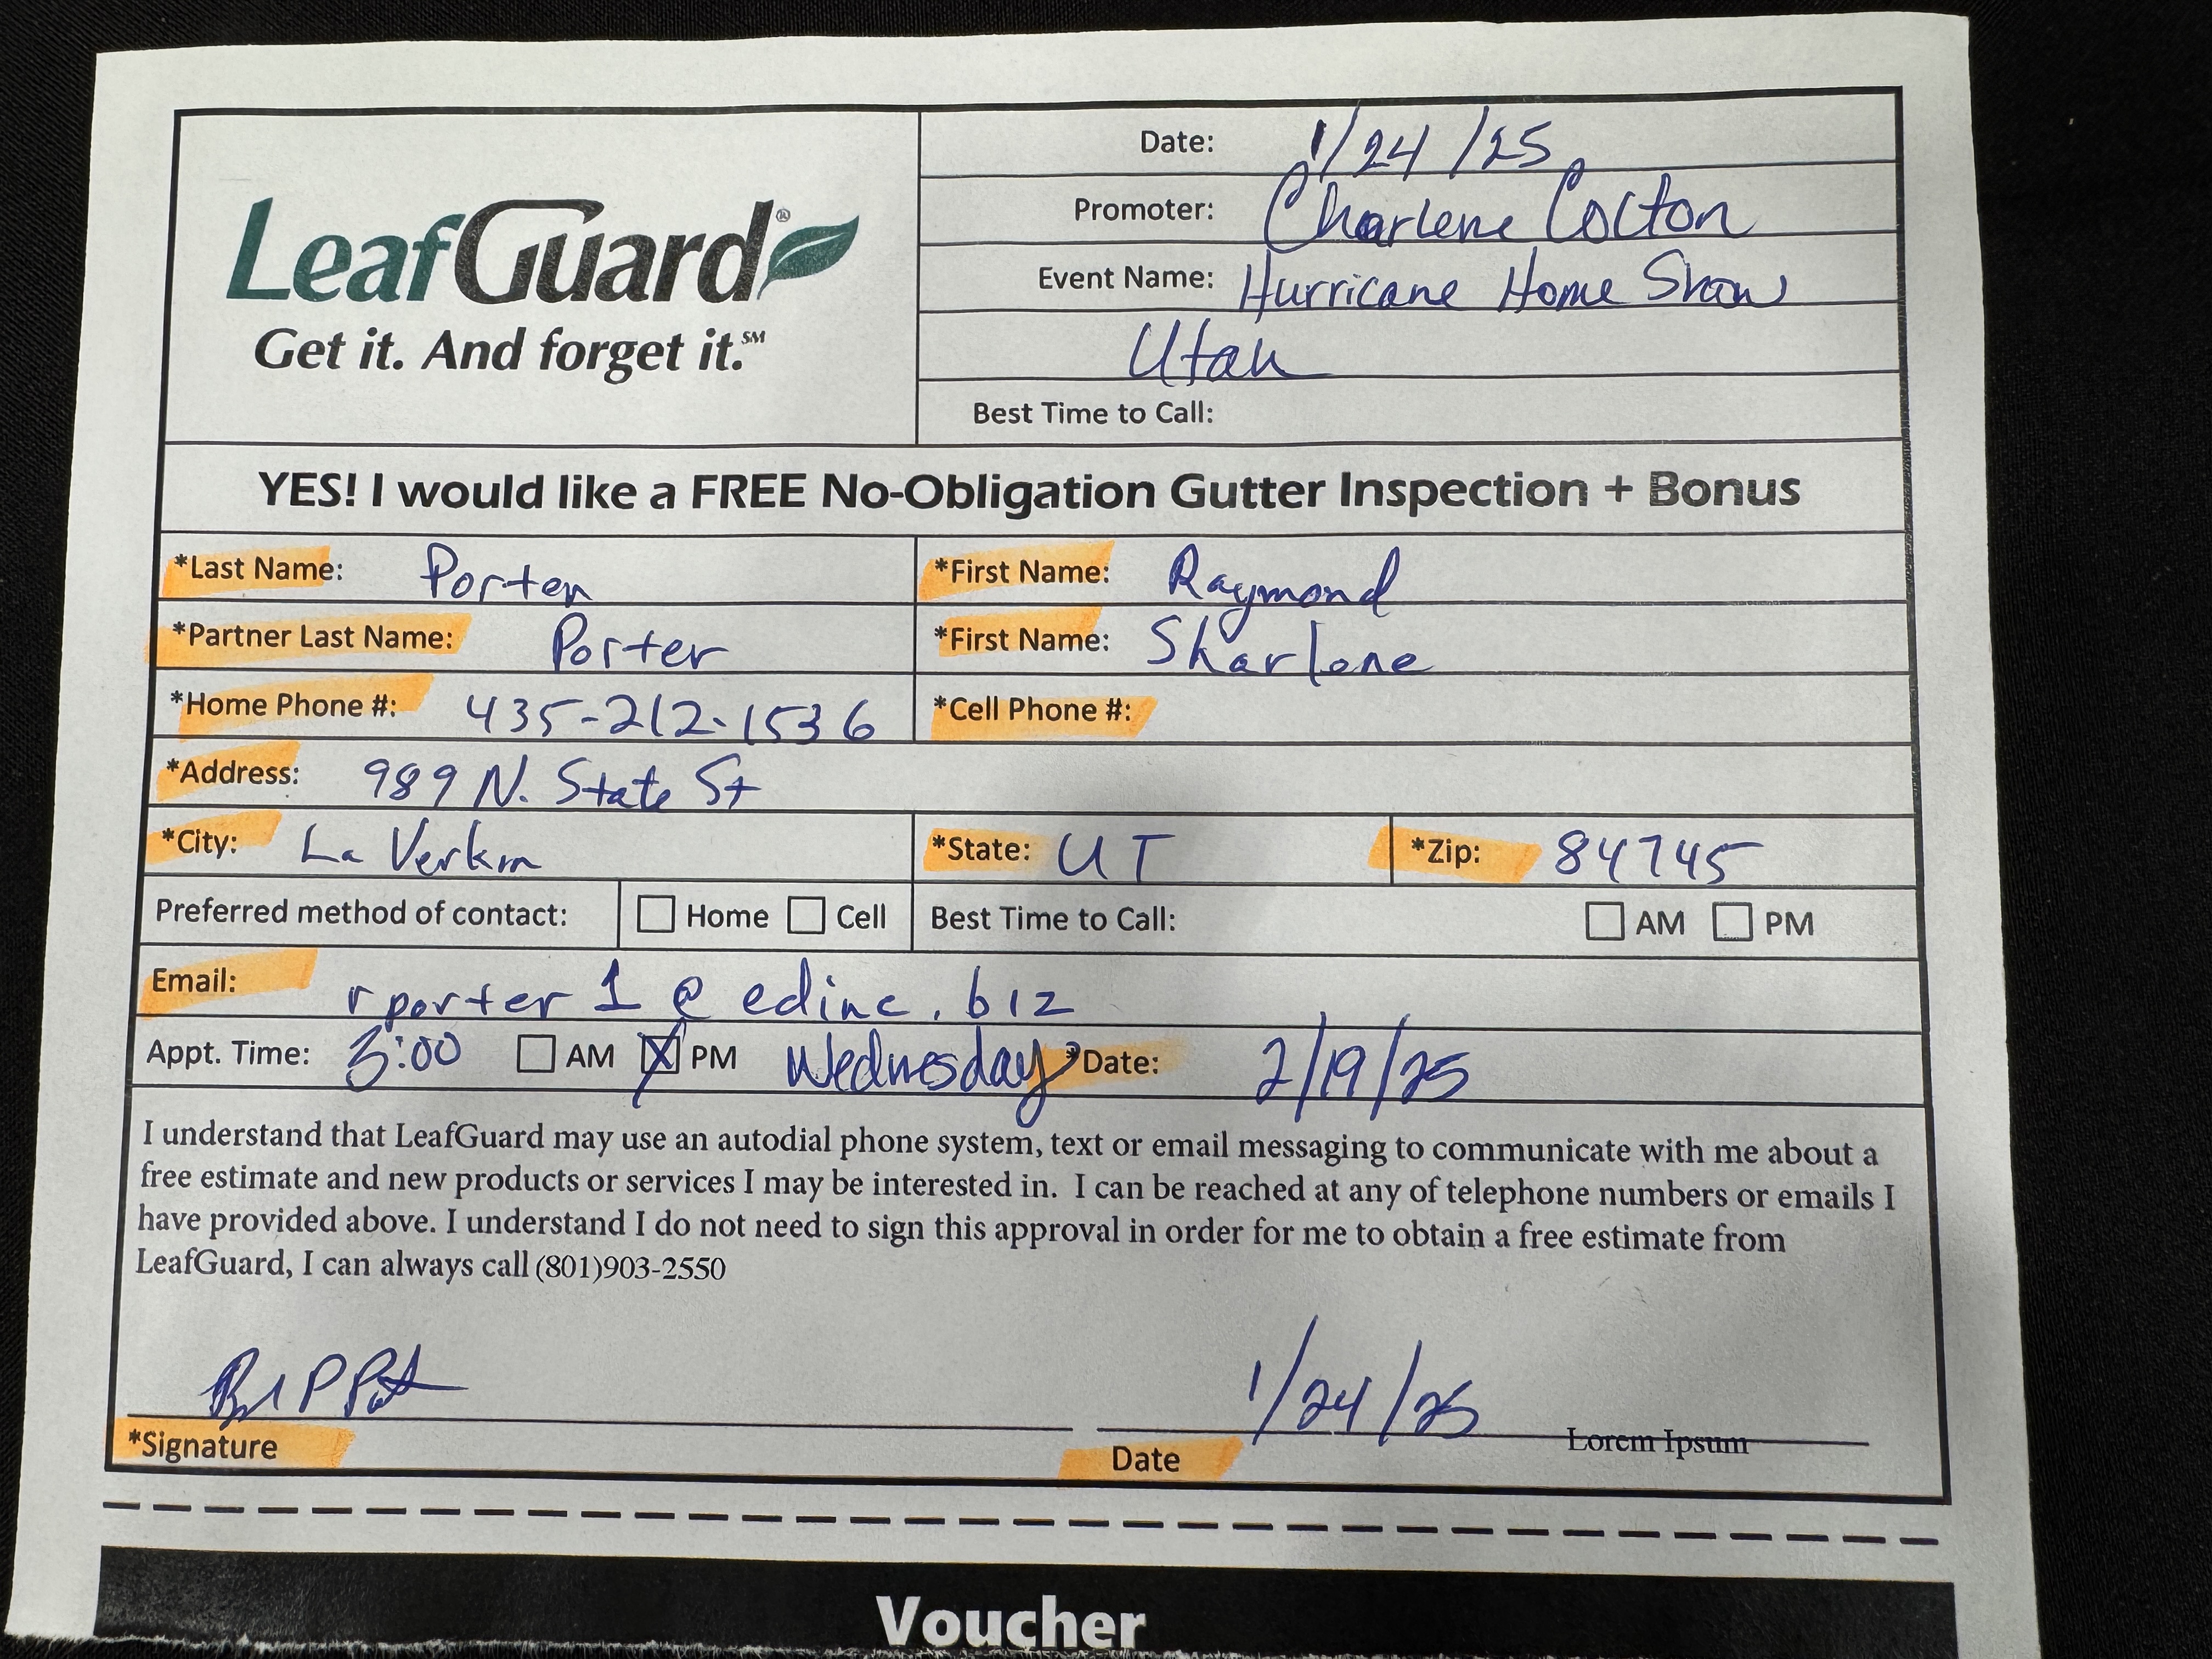 LeafGuard®
Get it. And forget it.℠
Date: 1/24/25
Promoter: Charlene Colton
Event Name: Hurricane Home Show
Utah
Best Time to Call:
YES! I would like a FREE No-Obligation Gutter Inspection + Bonus
*Last Name: Porter *First Name: Raymond
*Partner Last Name: Porter *First Name: Sharlene
*Home Phone #: 435-212-1536 *Cell Phone #:
*Address: 989 N. State St
*City: La Verkin *State: UT *Zip: 84745
Preferred method of contact: Home Cell Best Time to Call: AM PM
Email: rporter1@edinc.biz
Appt. Time: 3:00 AM PM Wednesday *Date: 2/19/25
I understand that LeafGuard may use an autodial phone system, text or email messaging to communicate with me about a
free estimate and new products or services I may be interested in. I can be reached at any of telephone numbers or emails I
have provided above. I understand I do not need to sign this approval in order for me to obtain a free estimate from
LeafGuard, I can always call (801)903-2550
1/24/25 Lorem Ipsum
*Signature Date
Voucher